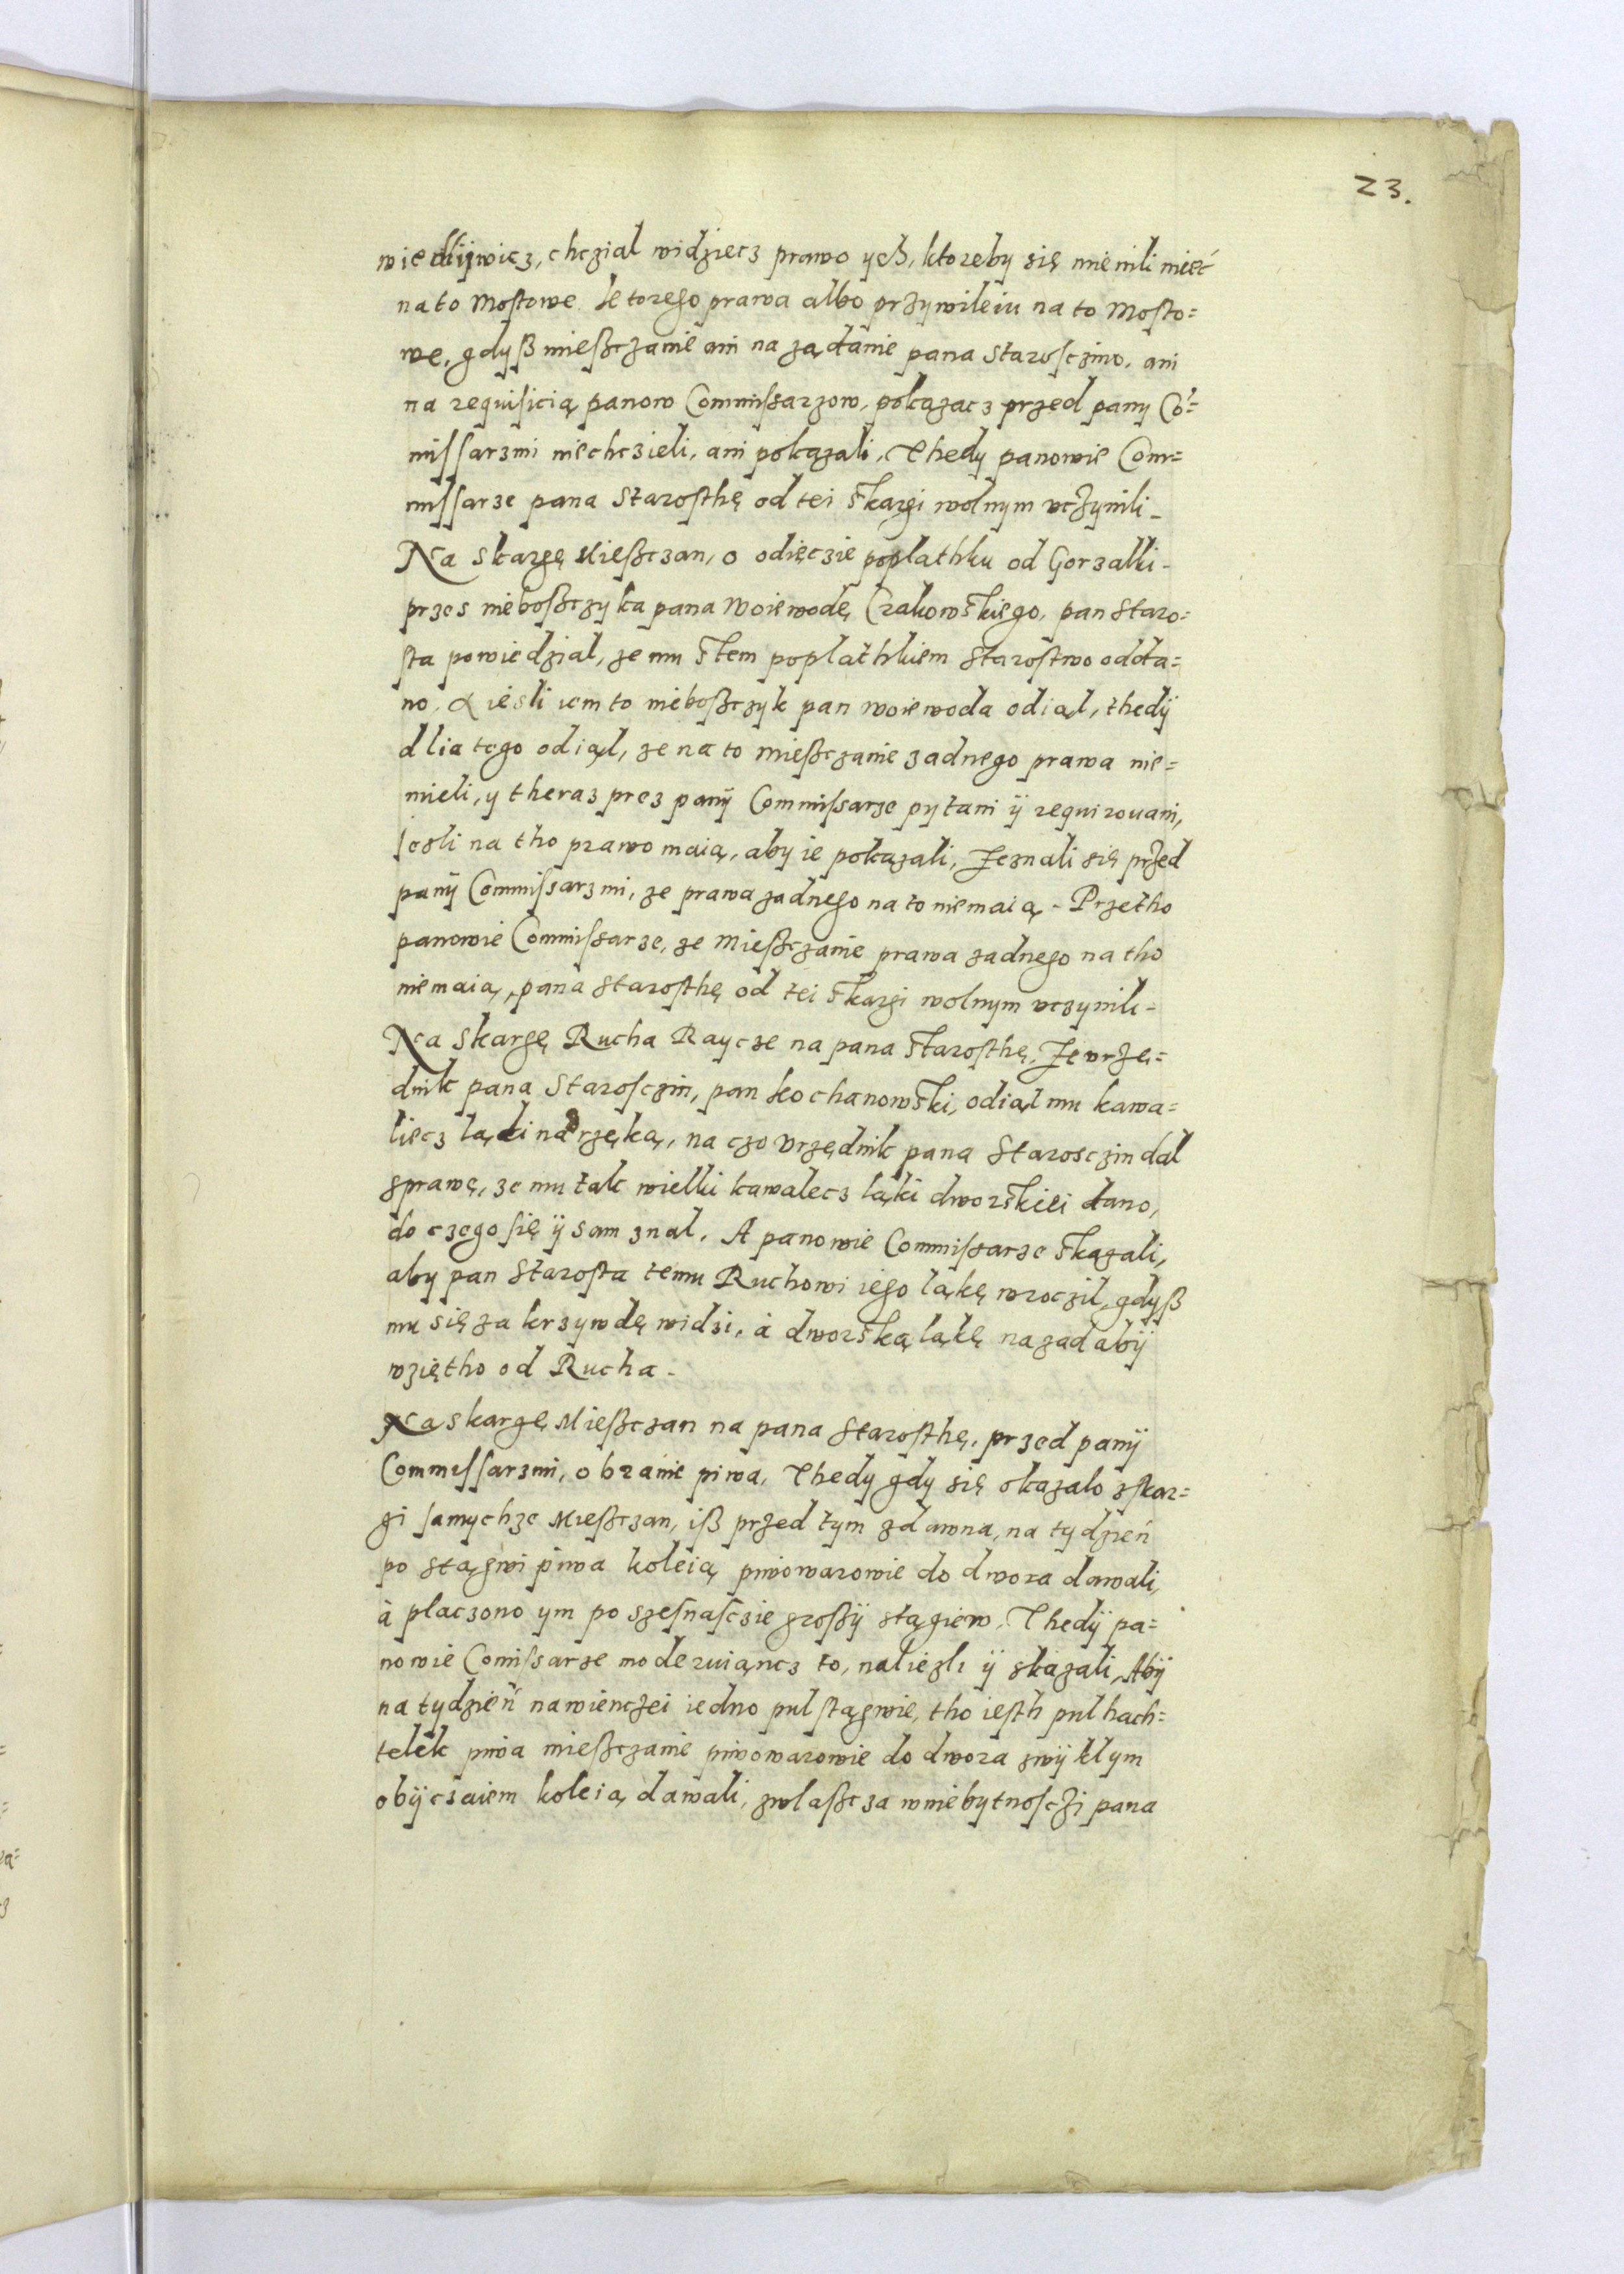 23.
wiedlijwiecz, chczial widziecz prawo ych, ktoreby się mienili mieć
na to Mostowe. Ktorego prawa albo przywileiu na to Mosto=
we, gdysz mieszczanie ani na ządanie pana Starosczino, ani
na requisicią panow Commissarzow, pokazacz przed pany Co=
missarzmi niechczieli, ani pokazali, Thedy panowie Com=
missarze pana Starosthę od tei skargi wolnym vczynili_
Na Skargę Mieszczan, o odięczie poplathku od Gorzalki.
przes niebosczyka pana Woiewodę Crakowskiego, pan Staro=
sta powiedzial, ze mu stem poplathkiem Starostwo odda=
no. A iesli iem to niebosczyk pan Woiewoda odiąl, thedij
dlia tego odiąl, ze na to mieszczanie zadnego prawa nie=
mieli, y theraz prez panij Commissarze pytani ij requirowani,
Iesli na tho prawo maią, aby ie pokazali, Zeznali się przed
panij Commissarzmi, ze prawa zadnego na to niemaią. Przetho
panowie Commissarze, ze Mieszczanie prawa zadnego na tho
niemaią, pana Starosthę od tei skargi wolnym vczynili.
Na Skargę Rucha Raycze na pana Starosthę, Ze vrzę=
dnik pana Starosczin, pan Kochanowski, odiąl mu kawa=
liecz ląki nad rzęką, na czo vrzędnik pana Starosczin dal
sprawę, ze mu tak wielki kawalecz ląki dworskiei dano,
do czego się ij sam znal. A panowie Commissarze skazali,
aby pan Starosta temu Ruchowi iego ląkę wroczil, gdysz
mu się za krzywdę widzi, à dworską ląkę nazad abij
wziętho od Rucha.
Na skargę Mieszczan na pana Starosthę, przed panij
Commissarzmi, o branie piwa, Thedy gdy się okazalo z skar=
gi samychze Mieszczan, isz przed tym zdawna, na tydzień
po stągwi piwa koleią piwowarowie do dwora dawali,
à placzono ym po szesnasczie groszij stągiew. Thedij pa=
nowie Comissarze moderuiąncz to, naliezli ij skazali, Abij
na tydzień nawienczei iedno pul stągwie, tho iesth pul hach=
telek piwa mieszczanie piwowarowie do dwora zwijklym
obijczaiem koleią dawali, zwlaszcza w niebytnosczi pana